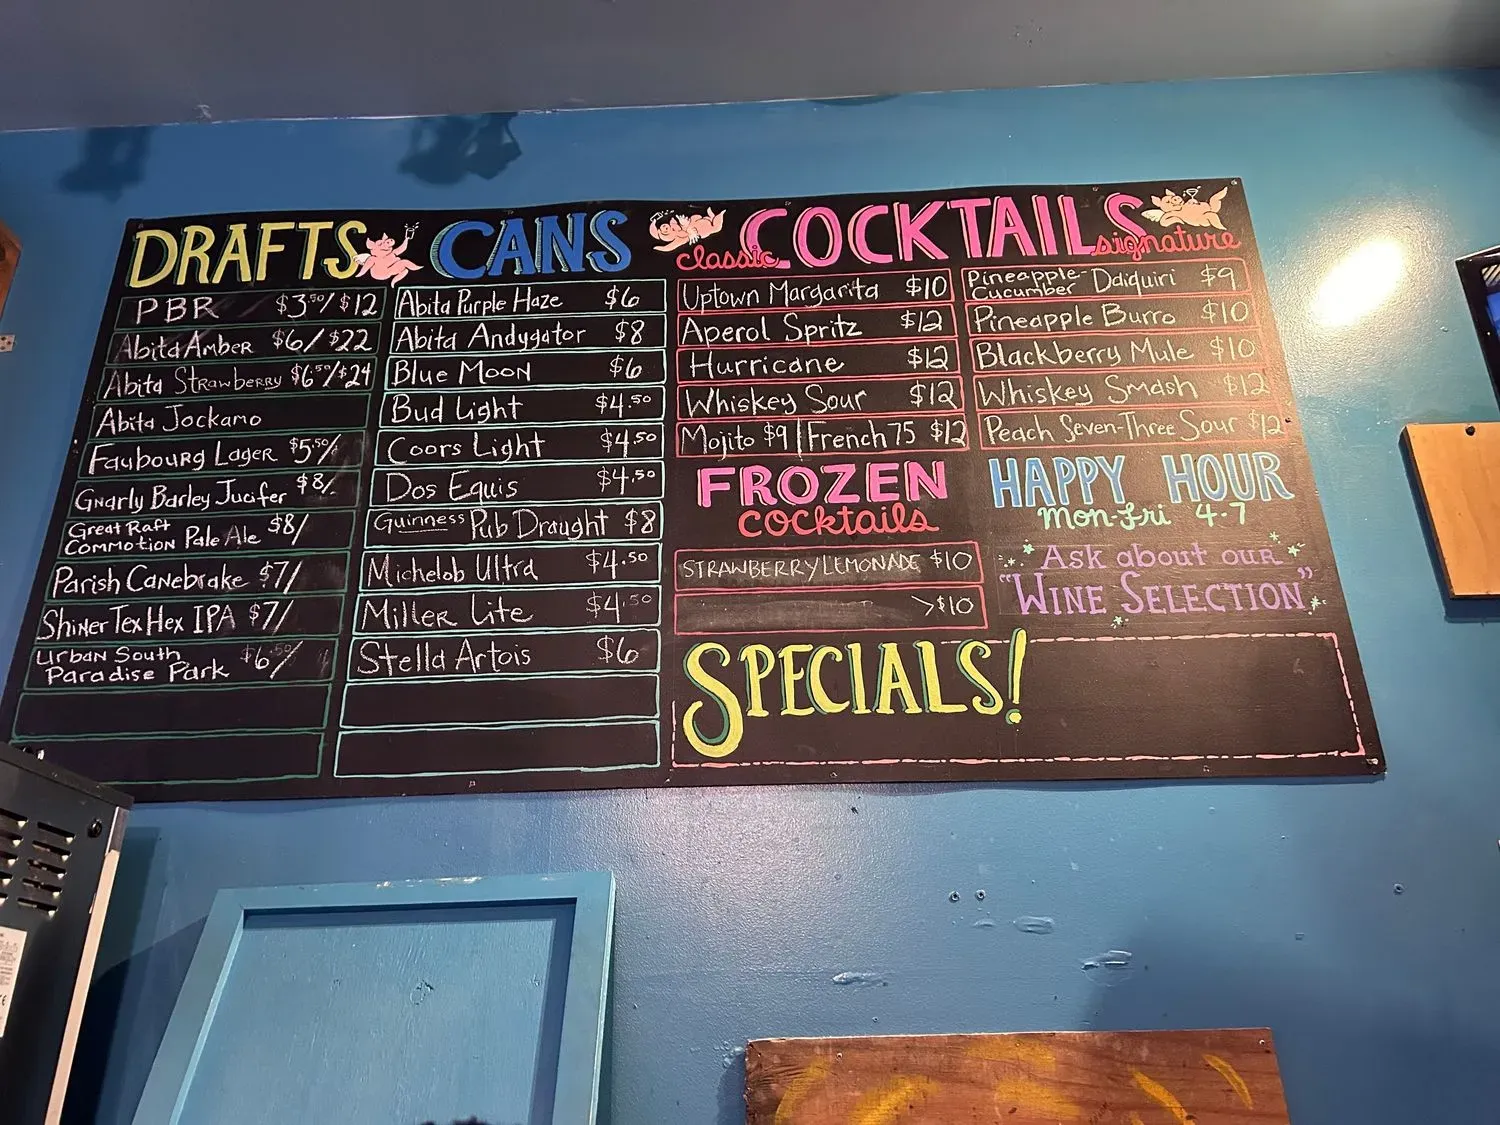 DRAFTS
PBR $3.50/$12
Abita Amber $6/$22
Abita Strawberry $6.50/$24
Abita Jockamo
Faubourg Lager $5.50/
Gnarly Barley Jucifer $8/
Great Raft
Commotion Pale Ale $8/
Parish Canebrake $7/
Shiner Tex Hex IPA $7/
Urban South
Paradise Park $6.50/
CANS
Abita Purple Haze $6
Abita Andygator $8
Blue Moon $6
Bud Light $4.50
Coors Light $4.50
Dos Equis $4.50
Guinness Pub Draught $8
Michelob Ultra $4.50
Miller Lite $4.50
Stella Artois $6
COCKTAILS
classic
Uptown Margarita $10
Aperol Spritz $12
Hurricane $12
Whiskey Sour $12
Mojito $9 | French 75 $12
signature
Pineapple-
Cucumber Daiquiri $9
Pineapple Burro $10
Blackberry Mule $10
Whiskey Smash $12
Peach Seven-Three Sour $12
FROZEN
cocktails
STRAWBERRY LEMONADE $10
>$10
HAPPY HOUR
Mon-Fri 4-7
Ask about our
"WINE SELECTION"
SPECIALS!